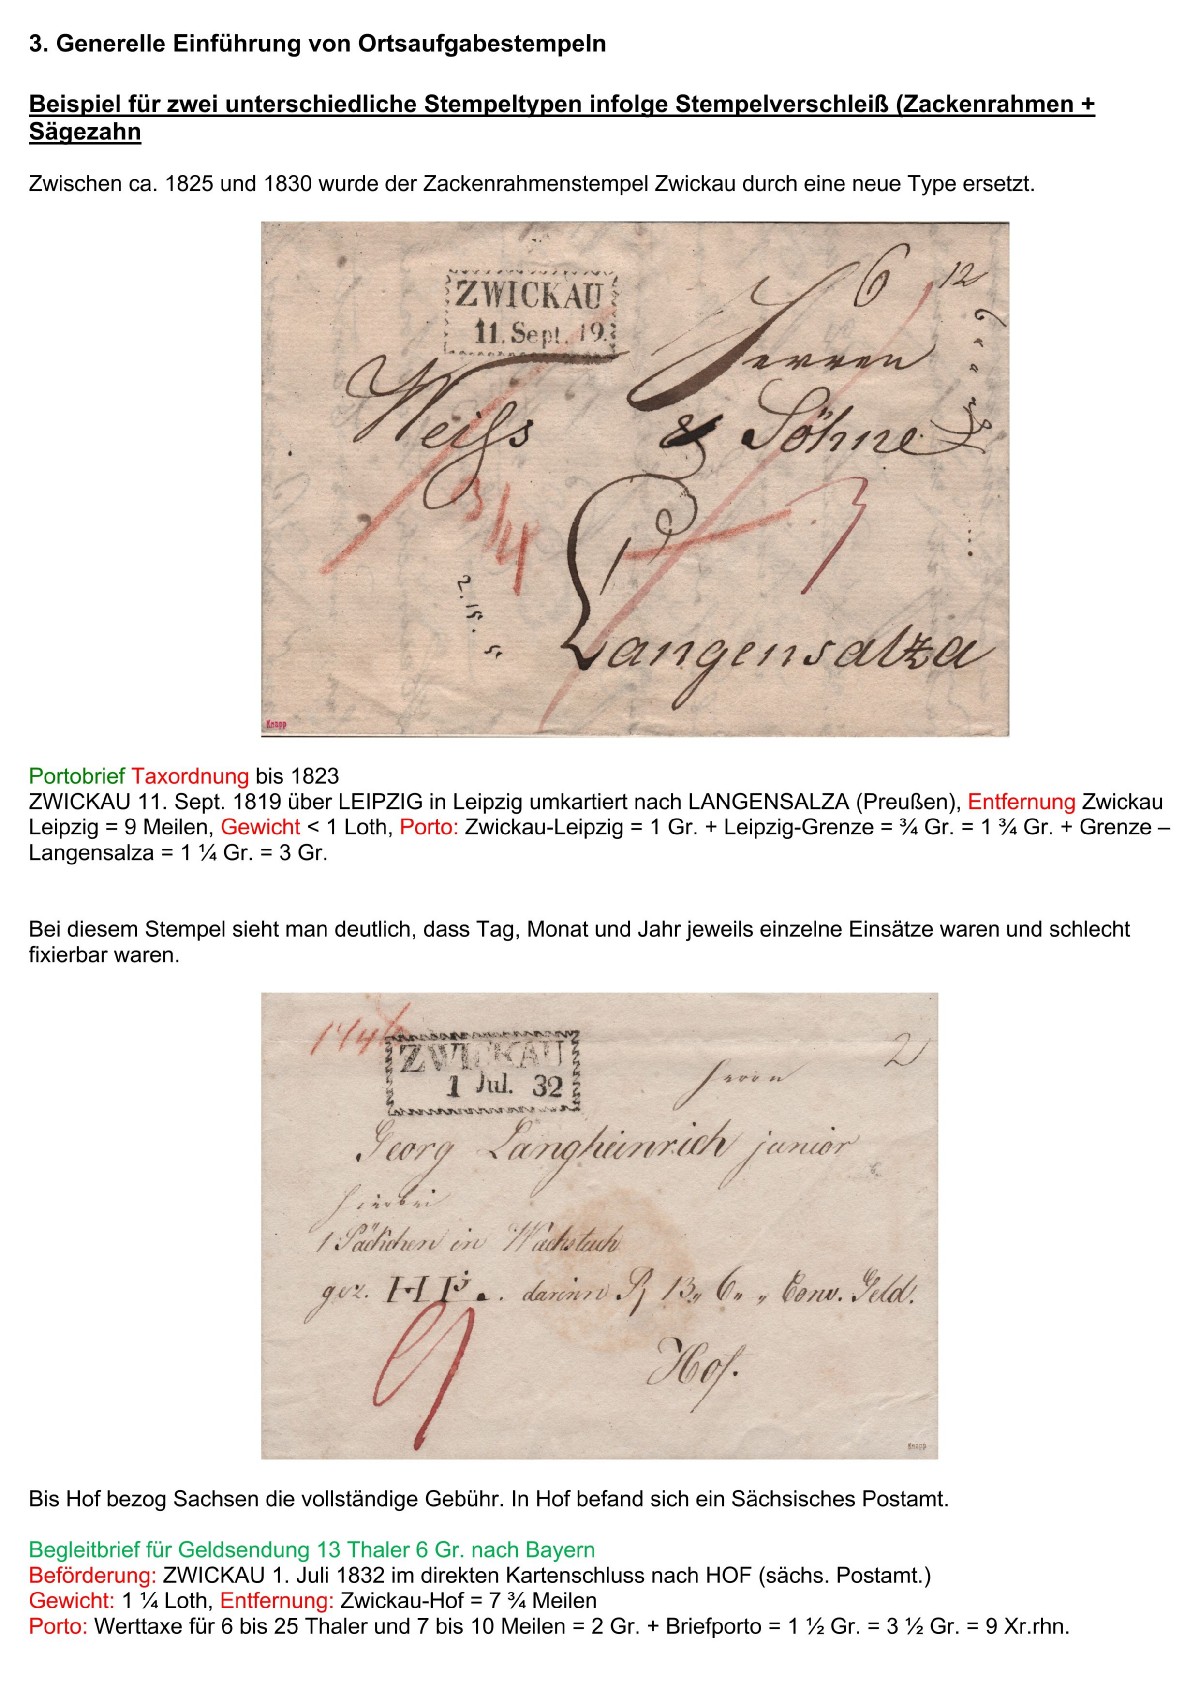 3. Generelle Einführung von Ortsaufgabestempeln
Beispiel für zwei unterschiedliche Stempeltypen infolge Stempelverschleiß (Zackenrahmen +
Sägezahn
Zwischen ca. 1825 und 1830 wurde der Zackenrahmenstempel Zwickau durch eine neue Type ersetzt.
ZWICKAU
11. Sept. 19.
6 12
Herren
Weiss & Söhne
3/4
1 3
2. 15. 5.
Langensalza
Knapp
Portobrief Taxordnung bis 1823
ZWICKAU 11. Sept. 1819 über LEIPZIG in Leipzig umkartiert nach LANGENSALZA (Preußen), Entfernung Zwickau
Leipzig = 9 Meilen, Gewicht < 1 Loth, Porto: Zwickau-Leipzig = 1 Gr. + Leipzig-Grenze = ¾ Gr. = 1 ¾ Gr. + Grenze –
Langensalza = 1 ¼ Gr. = 3 Gr.
Bei diesem Stempel sieht man deutlich, dass Tag, Monat und Jahr jeweils einzelne Einsätze waren und schlecht
fixierbar waren.
1 1/4
ZWICKAU
1 Jul. 32
2
Herrn
Georg Langheinrich junior
hierbei
1 Päckchen in Wachstuch
gez. darinn 13,, 6,, ,, Conv. Geld.
Hof.
9
Knapp
Bis Hof bezog Sachsen die vollständige Gebühr. In Hof befand sich ein Sächsisches Postamt.
Begleitbrief für Geldsendung 13 Thaler 6 Gr. nach Bayern
Beförderung: ZWICKAU 1. Juli 1832 im direkten Kartenschluss nach HOF (sächs. Postamt.)
Gewicht: 1 ¼ Loth, Entfernung: Zwickau-Hof = 7 ¾ Meilen
Porto: Werttaxe für 6 bis 25 Thaler und 7 bis 10 Meilen = 2 Gr. + Briefporto = 1 ½ Gr. = 3 ½ Gr. = 9 Xr.rhn.